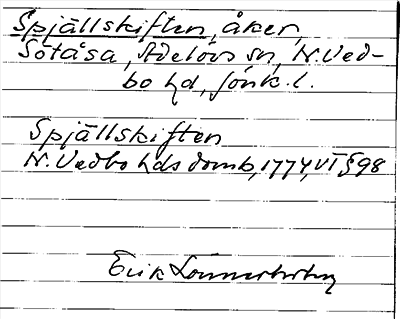 Spjällskiften, åker,
Sötåsa, Adelövs sn, N. Ved-
bo hd, Jönk. l.
Spjällskiften
N. Vedbo hds domb, 1774, VI § 98
Erik